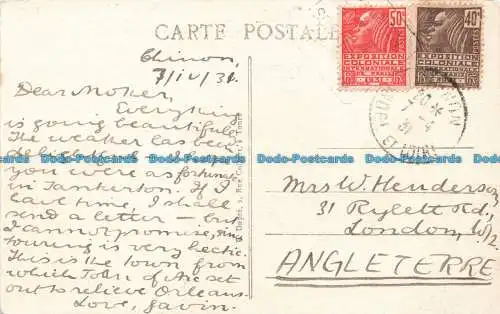 CARTE POSTALE
Chinon,
7/IV/31.
Dear Moker,
Everything
is going beautifully.
The weather has been
delightful
you were as fortunate
in Tankerton. If I
have time, I shall
send a letter – but
I cannot promise,
touring is very hectic.
This is the town from
which Joan of Arc set
out to relieve Orleans.
Love, Gavin.
50c
EXPOSITION
COLONIALE
INTERNATIONALE
PARIS
1931
40c
EXPOSITION
COLONIALE
INTERNATIONALE
PARIS
1931
POSTES
Mrs W. Henderson,
31 Rylett Rd.,
London, W12
ANGLETERRE
Dodo-Postcards Dodo-Postcards Dodo-Postcards Dodo-Postcards Dodo-Postcards